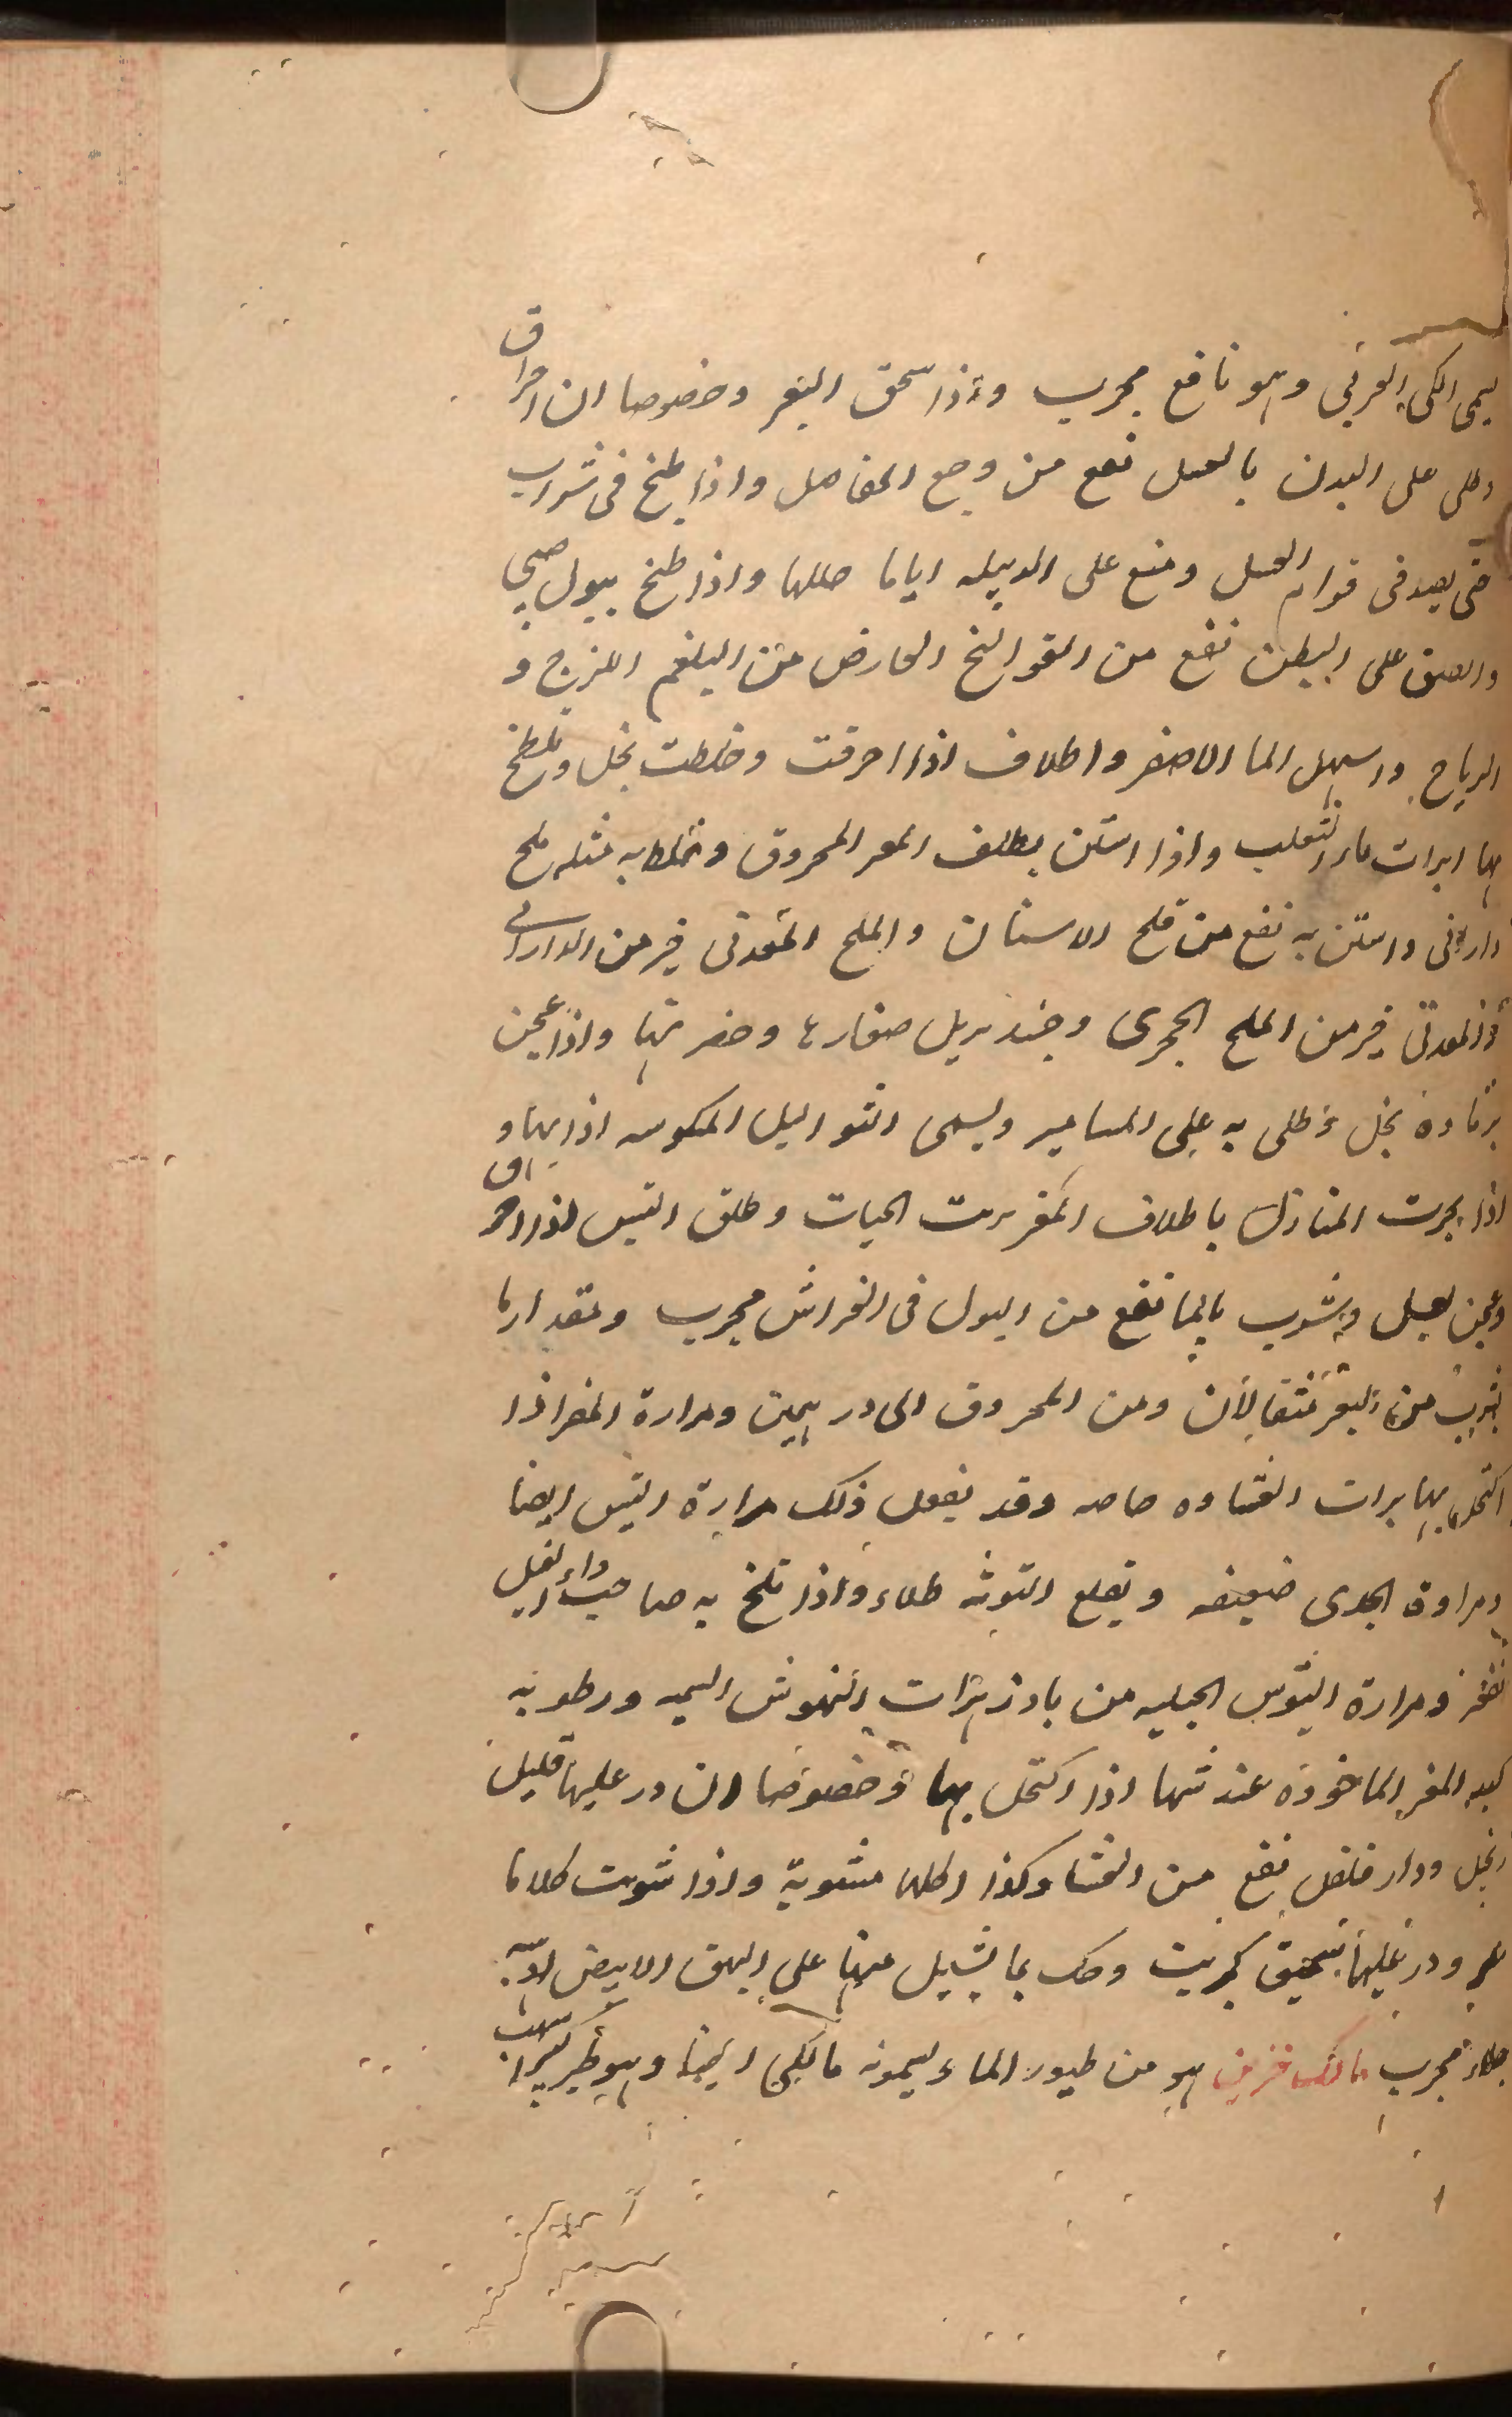 يسمى الكى العرقى وهو نافع مجرب واذا سحق البعر وخصوصا ان احراق
وطلى على البدن بالعسل نفع من وجع المفاصل واذا طبخ فى شراب
حتى يصير فى قوام العسل ووضع على الدبيله اياما حللها واذا طبخ ببول صبى
والصق على البطن نفع من القوالنج العارض من البلغم اللزج و
الرياح واسهل الما الاصفر واظلاف اذا احرقت وخلطت بخل ولطخ
بها ابرات داء الثعلب واذا استن بظلف المعز المحروق وخلط به مثله ملح
دارانى واستن به نفع من قلح الاسنان والملح المعدنى خير من الدارانى
والمعدنى خير من الملح الحجرى صغارها وحضرتها واذا عجن
برماده بخل وطلى به على المسامير ويسمى الثواليل المنكوسه اذابها و
اذا بخرت المنازل باظلاف المعز هربت الحيات وظلف التيس اذا احراق
وعجن بعسل وشرب بالما نفع من البول فى الفراش مجرب ومقدار ما
يشرب من البعر مثقالان ومن المحروق الى درهمين ومرارة المعز اذا
اكتحل بها برات الغشاوه خاصه وقد يفعل ذلك مرارة التيس ايضا
ومرارة الجدى ضعيفه ويقلع التوثه طلاء واذا تلطخ به صاحب داء الفيل
نفعه ومرارة التيوس الجبليه من بادزهرات النهوش السميه ورطوبه
كبد المعز الماخوذه عند شيها اذا اكتحل بها وخصوصا ان در عليها قليل
ودار فلفل نفع من العشا وكذا اكلها مشوية واذا شويت كلاها
وذر عليها سحيق كبريت وحك بما يسيل منها على البهق الابيض
طلاء مجرب مالك حزين هو من طيور الماء يسمونه مالكى ايضا وهو طير كبير